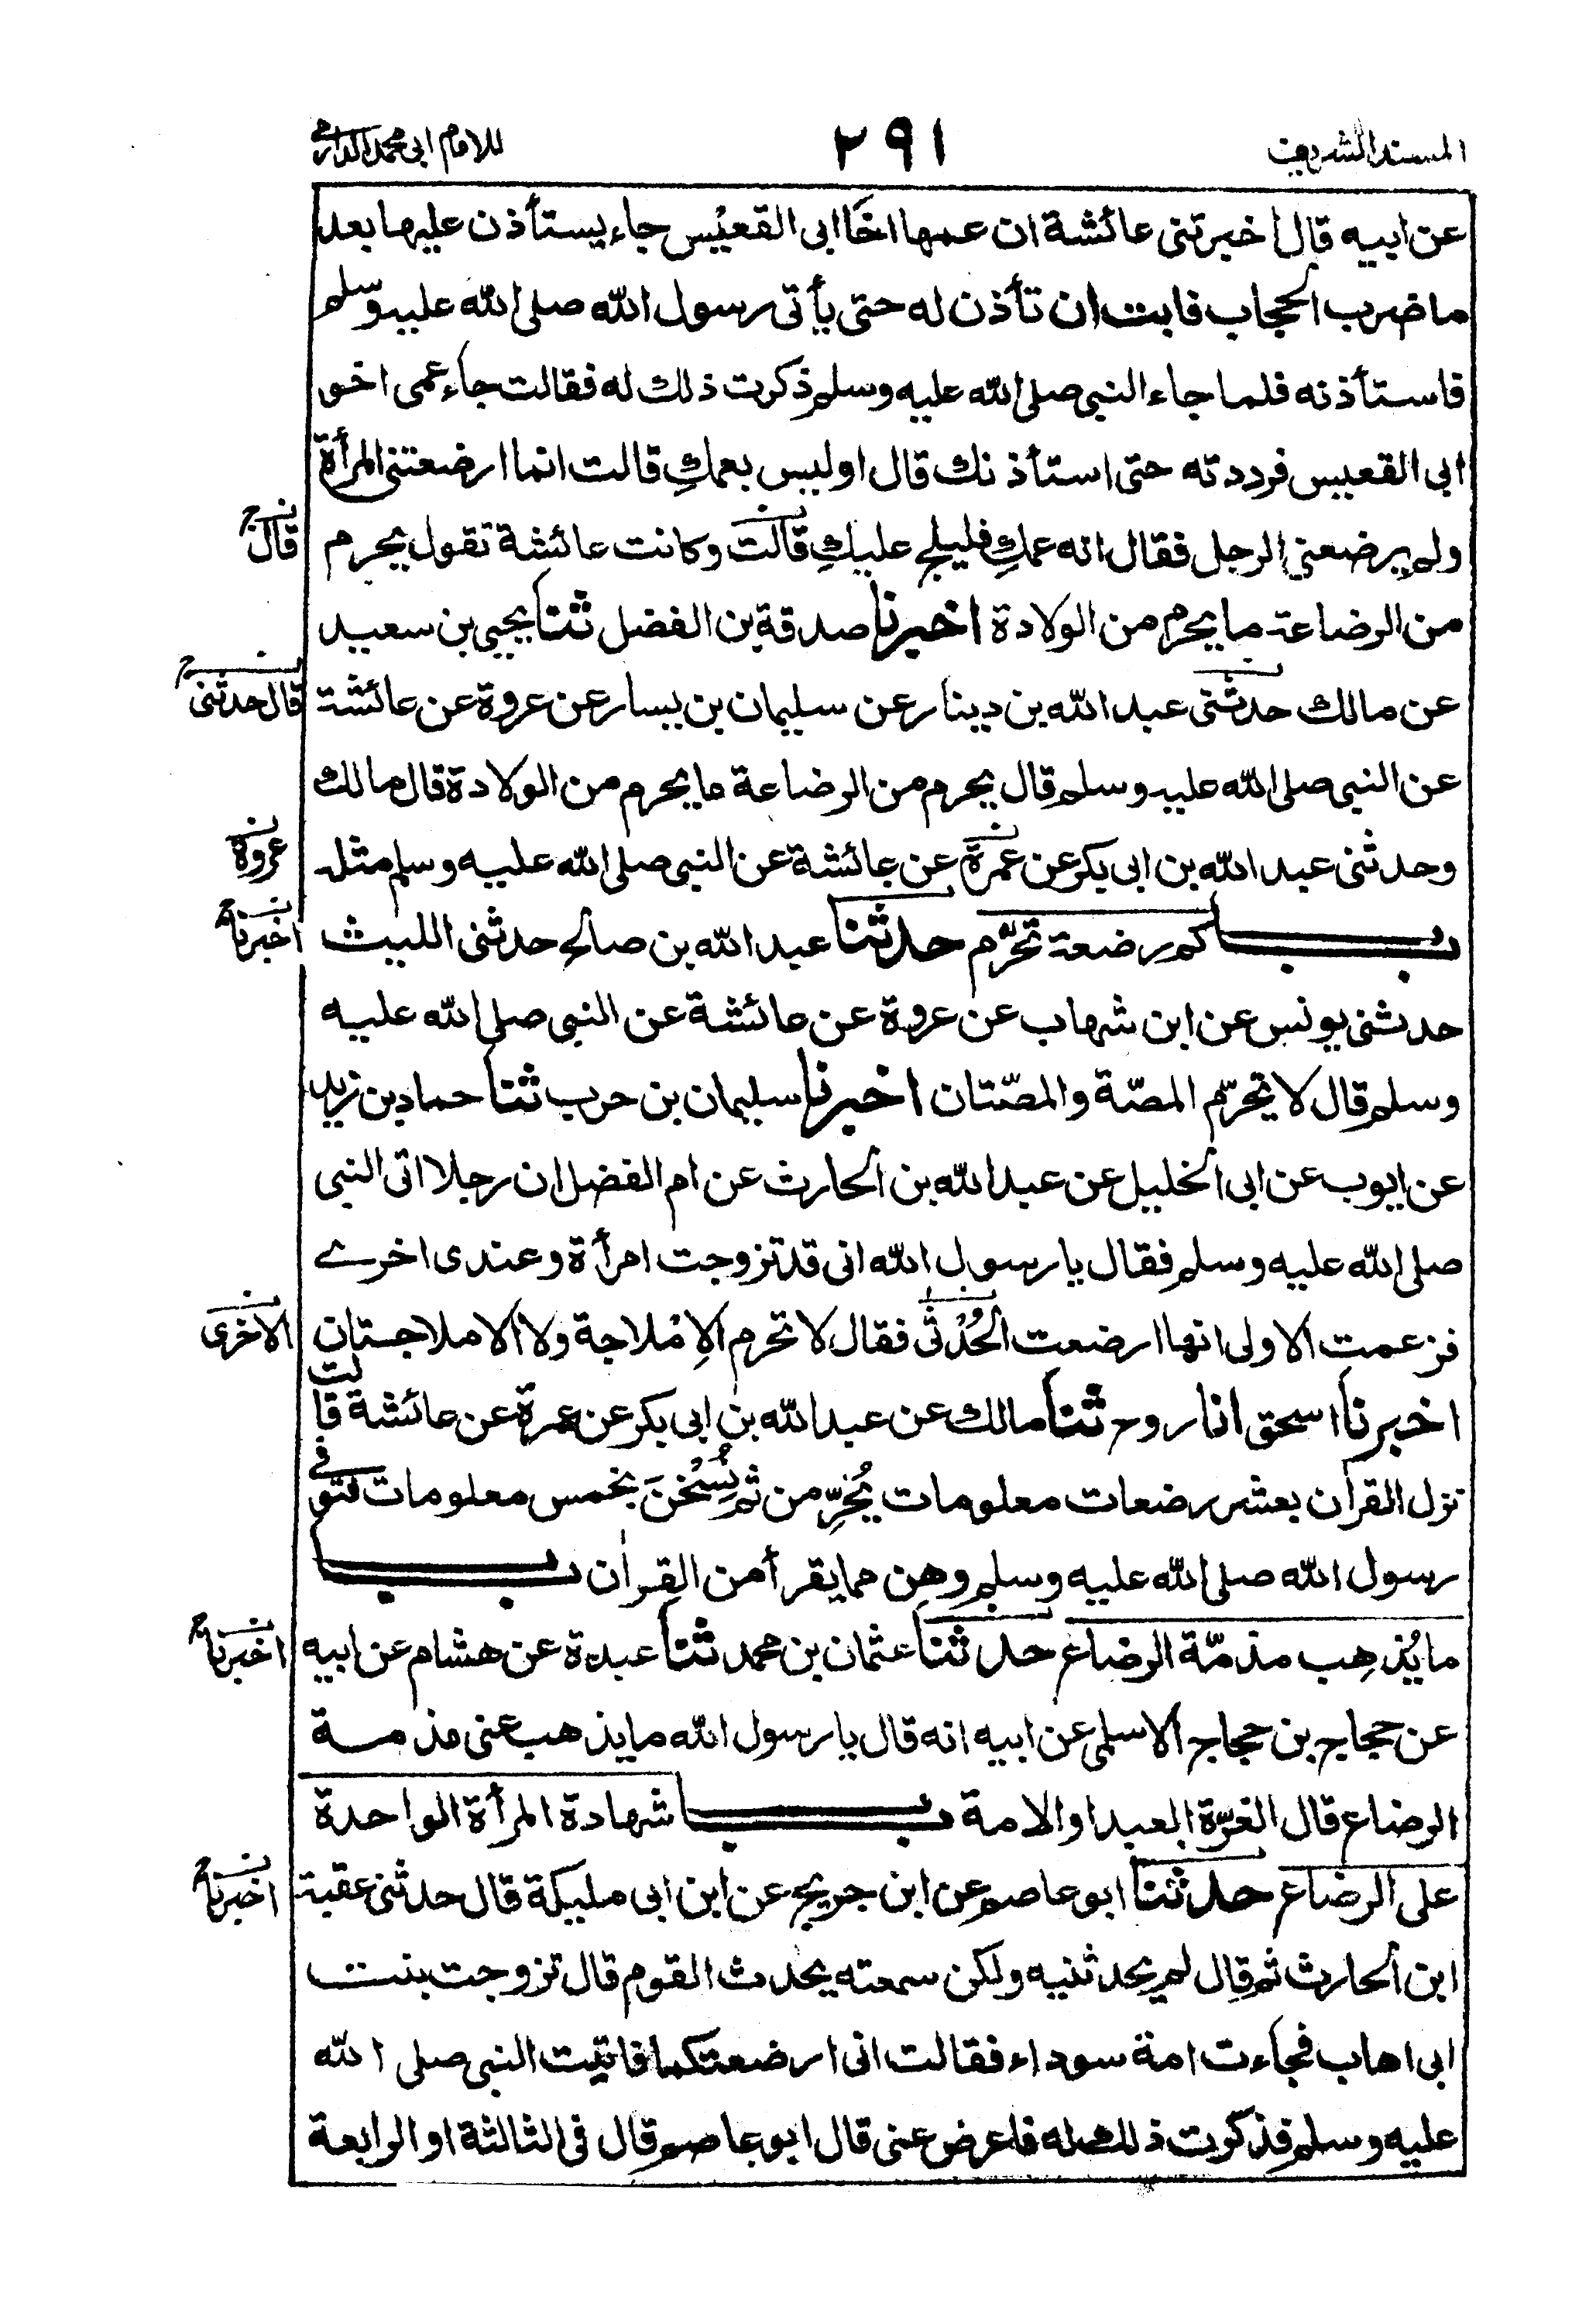 المسند الشريف
٢٩١
للامام ابى محمد الدارمى
عن ابيه قال اخبرتنى عائشة ان عمها اخا ابى القعيس جاء يستأذن عليها بعد
ما ضرب الحجاب فابت ان تأذن له حتى يأتى رسول الله صلى الله عليه وسلم
فاستأذنه فلما جاء النبى صلى الله عليه وسلم ذكرت ذلك له فقالت جاء عمى اخو
ابى القعيس فرددته حتى استأذنك قال اوليس بعمكِ قالت انما ارضعتنى المرأة
ولم يرضعنى الرجل فقال انه عمكِ فليلج عليكِ قالت وكانت عائشة تقول يحرم
قال
من الرضاعة ما يحرم من الولادة اخبرنا صدقة بن الفضل ثنا يحيى بن سعيد
عن مالك حدثنى عبد الله بن دينار عن سليمان بن يسار عن عروة عن عائشة
قال حدثنى
عن النبى صلى الله عليه وسلم قال يحرم من الرضاعة ما يحرم من الولادة قال مالك
وحدثنى عبد الله بن ابى بكر عن عمرة عن عائشة عن النبى صلى الله عليه وسلم مثله
عروة
باب كم رضعة تحرّم حدثنا عبد الله بن صالح حدثنى الليث
اخبرنا
حدثنى يونس عن ابن شهاب عن عروة عن عائشة عن النبى صلى الله عليه
وسلم قال لا تحرّم المصّة والمصّتان اخبرنا سليمان بن حرب ثنا حماد بن زيد
عن ايوب عن ابى الخليل عن عبد الله بن الحارث عن ام الفضل ان رجلا اتى النبى
صلى الله عليه وسلم فقال يا رسول الله انى قد تزوجت امرأة وعندى اخرے
فزعمت الاولى انها ارضعت الحُدْثى فقال لا تحرم الاِمْلاجة ولا الاملاجتان
الاخرى
اخبرنا اسحق انا روح ثنا مالك عن عبد الله بن ابى بكر عن عمرة عن عائشة قالت
نزل القرآن بعشر رضعات معلومات يُحَرِّمن ثم نُسِخْنَ بخمس معلومات فتوفى
رسول الله صلى الله عليه وسلم وهن مما يقرأ من القرآن باب
ما يُذهِب مذمّة الرضاع حدثنا عثمان بن محمد ثنا عبدة عن هشام عن ابيه
اخبرنا
عن حجاج بن حجاج الاسلمى عن ابيه انه قال يا رسول الله ما يذهب عنى مذمة
الرضاع قال الغرّة العبد او الامة باب شهادة المرأة الواحدة
على الرضاع حدثنا ابو عاصم عن ابن جريج عن ابن ابى مليكة قال حدثنى عقبة
اخبرنا
ابن الحارث ثم قال لم يحدثنيه ولكن سمعته يحدث القوم قال تزوجت بنت
ابى اهاب فجاءت امة سوداء فقالت انى ارضعتكما فاتيت النبى صلى الله
عليه وسلم فذكرت ذلك له فاعرض عنى قال ابو عاصم قال فى الثالثة او الرابعة